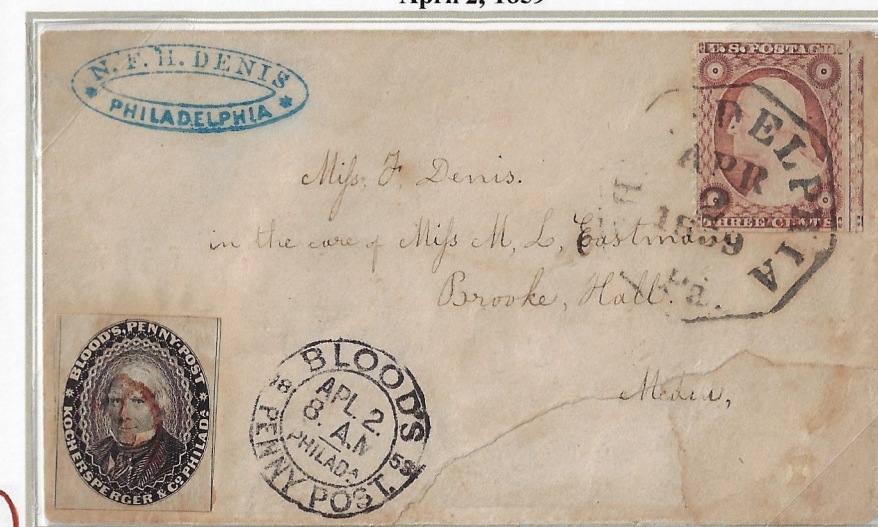 April 2, 1859
N. F. H. DENIS
* PHILADELPHIA *
U.S. POSTAGE
THREE CENTS
DELPHIA
APR
2
1859
Pa.
Miss. F. Denis.
in the care of Miss M. L. Eastman
Brooke, Hall.
Media,
* BLOOD'S, PENNY-POST *
KOCHERSPERGER & Co. PHILADA.
BLOOD'S
18 59
APL. 2.
8. A.M
PHILADA
PENNY POST.